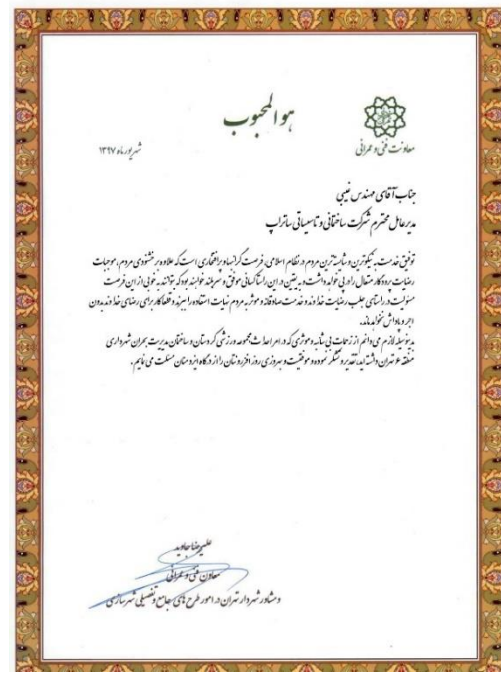 هو المحبوب
معاونت فنی و عمرانی
شهریور ماه ۱۳۹۷
جناب آقای مهندس غیبی
مدیرعامل محترم شرکت ساختمانی و تاسیساتی ساتراپ
توفیق خدمت به نیکوترین و شایسته‌ترین مردم در نظام اسلامی، فرصت گرانبها و پرافتخاری است که علاوه بر خشنودی مردم، موجبات
رضایت پروردگار متعال را در پی خواهد داشت و به یقین در این راستا کسانی موفق و سربلند خواهند بود که بتوانند به خوبی از این فرصت
مسئولیت در راستای جلب رضایت خداوند و خدمت صادقانه و موثر به مردم نهایت استفاده را ببرند و قطعا کار برای رضای خداوند بدون
اجر و پاداش نخواهد ماند.
بدینوسیله لازم می دانم از زحمات بی شائبه و موثری که در امر احداث مجموعه ورزشی کردستان و ساختمان مدیریت بحران شهرداری
منطقه ۶ تهران داشته اید، تقدیر و تشکر نموده و موفقیت و بهروزی روز افزونتان را از درگاه ایزد منان مسئلت می نمایم.
علیرضا جاوید
معاون فنی و عمرانی
و مشاور شهردار تهران در امور طرح های جامع و تفصیلی شهرسازی